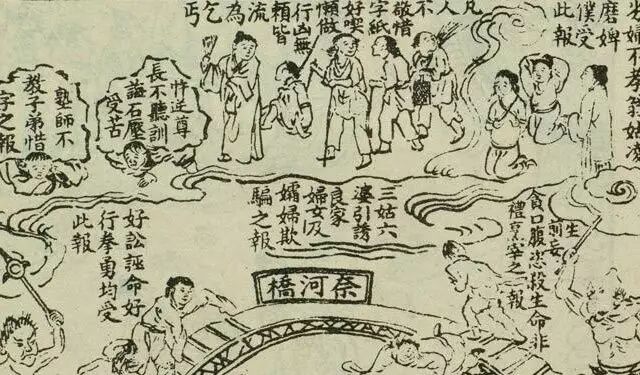 婦不孝翁姑凌
磨婢
僕受
此報
凡
人
不
敬惜
字紙
好喫
懶做
行凶無
賴皆
流
為
乞
丐
忤逆尊
長不聽訓
誨石壓
受苦
塾師不
教子弟惜
字之報
三姑六
婆引誘
良家
婦女及
孀婦欺
騙之報
生
前妄
貪口腹恣殺生命非
禮烹宰之報
好訟誣命好
行拳勇均受
此報
奈河橋